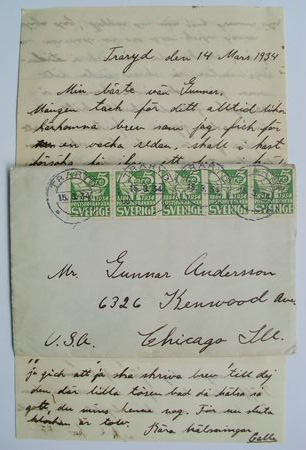 Traryd den 14 Mars. 1934
Min bäste vän Gunnar,
Mången tack för ditt alltid
brev som jag fick för
en vecka sedan, skall i hast
försöka
TRARYD
15.3.34
5 5 5 5 5
1884 1934
POSTSPARBANKEN
SVERIGE SVERIGE SVERIGE SVERIGE SVERIGE
Mr. Gunnar Andersson
6326 Kenwood Ave
U.S.A. Chicago Ill.
jo gick att ja ska skriva brev till dej
den där lilla tösen bad då hälsa så
gott, du mins henne nog. För nu sluta
klockan är tolv. Kära hälsningar
Calle